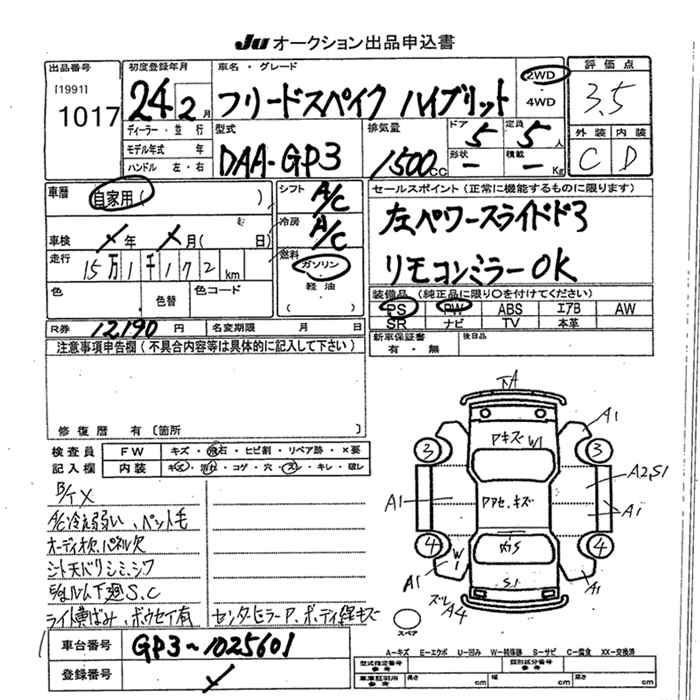 JU オークション出品申込書
出品番号 初度登録年月 車名・グレード 2WD 評価点
[1991] 1017 24年2月 フリードスペイク ハイブリット 4WD 3.5
ディーラー・並行 型式 排気量 ドア 5 定員 5人 外装 内装
モデル年式 年 DAA-GP3 1500cc 形状 ー 積載 ー Kg C D
ハンドル 左・右
車暦 自家用( ) シフト A/C セールスポイント(正常に機能するものに限ります)
冷房 A/C 左パワースライドド3
車検 ×年 ×月( 日)
走行 15万1千172km 燃料 ガソリン リモコンミラーOK
軽油
色 色替 色コード ( ) 装備品(純正品に限り○を付けてください)
PS PW ABS エアB AW
R券 12,190円 名変期限 月 日 SR ナビ TV 本革
注意事項申告欄(不具合内容等は具体的に記入して下さい) 新車保証書 後日品
有・無
修復暦 有〔箇所
検査員 FW キズ・飛石・ヒビ割・リペア跡・×要
記入欄 内装 キズ・汚れ・コゲ・穴・スレ・キレ・破レ
A/C冷え弱い、ペット毛
オーディオ欠、パネル欠
シート天バリシミ、シワ
下廻S、C
ライト黄ばみ、ボウセイ有 センターピラーP、ボディ線キズ
下A
アキズ W1
A1
3 3
A1 アアセ、キズ A2,S1
A1
4 4
W1 S1
A1 A1
ズレ A4
スペア
車台番号 GP3-1025601
登録番号 ×
A-キズ E-エクボ U-凹み W-補修跡 S-サビ C-腐食 XX-交換済
型式指定番号 参考 類別区分番号 参考
車庫証明用 参考 長さ cm 幅 cm 高さ cm